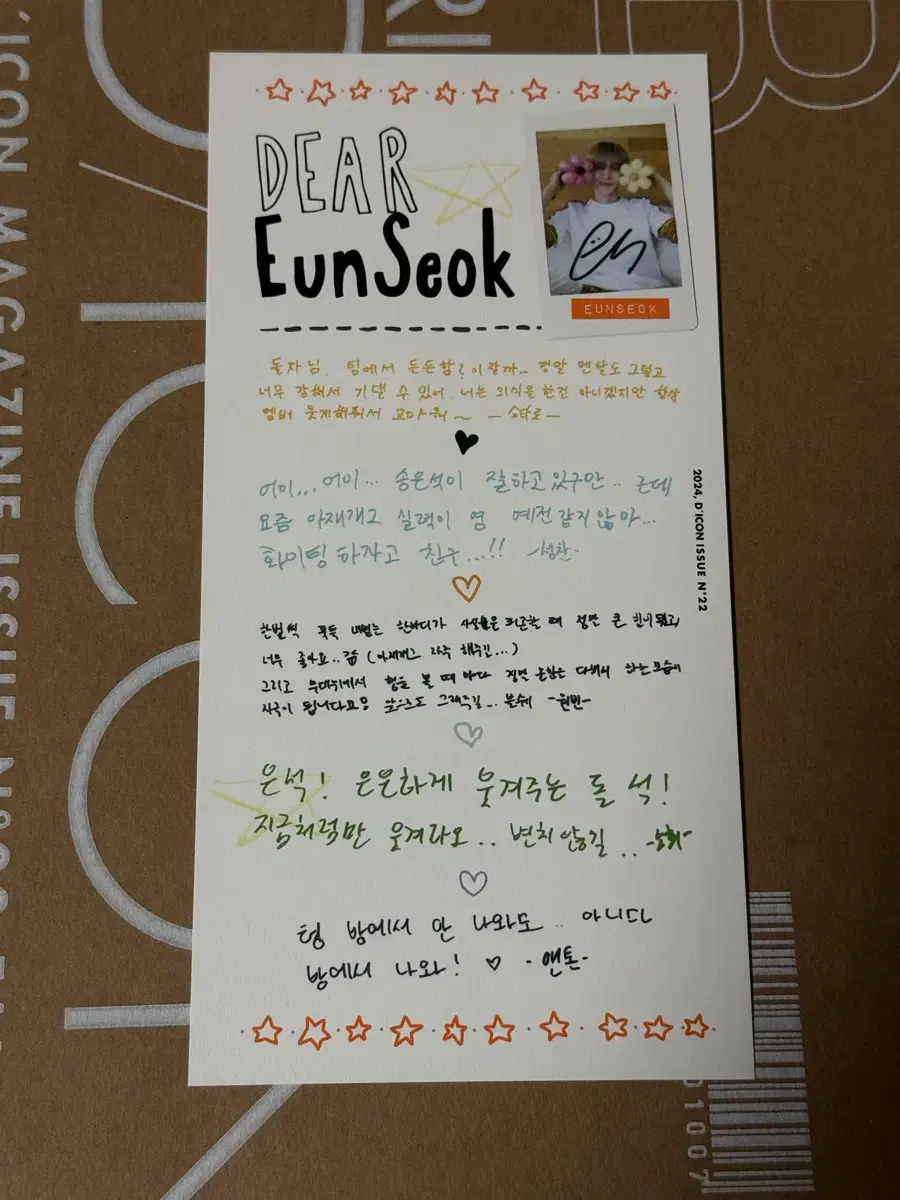 DEAR
EunSeok
EUNSEOK
돌자님. 팀에서 든든함?이랄까.. 정말 멘탈도 그렇고
너무 강해서 기댈 수 있어. 너는 의식을 한건 아니겠지만 항상
멤버 웃게해줘서 고마워~ -쇼타로-
어이... 어이... 송은석이 잘하고 있구만.. 근데
요즘 아재개그 실력이 영 예전같지 않아...
화이팅 하자고 친구...!! -성찬-
2024, D'ICON ISSUE N°22
한번씩 툭툭 내뱉는 한마디가 피곤할 때 정말 큰 힘이 됐고,
너무 좋아요.. (아재개그 자주 해주길...)
그리고 무대위에서 형을 볼 때 마다 정말 다해서 하는 모습이
자극이 됩니다요! 앞으로도 그래주길... -원빈-
은석! 은은하게 웃겨주는 돌 석!
지금처럼만 웃겨다오.. 변치 않길.. -소희-
형 방에서 안 나와도.. 아니다
방에서 나와! ♡ -앤톤-
D'ICON MAGAZINE ISSUE N°22
01007